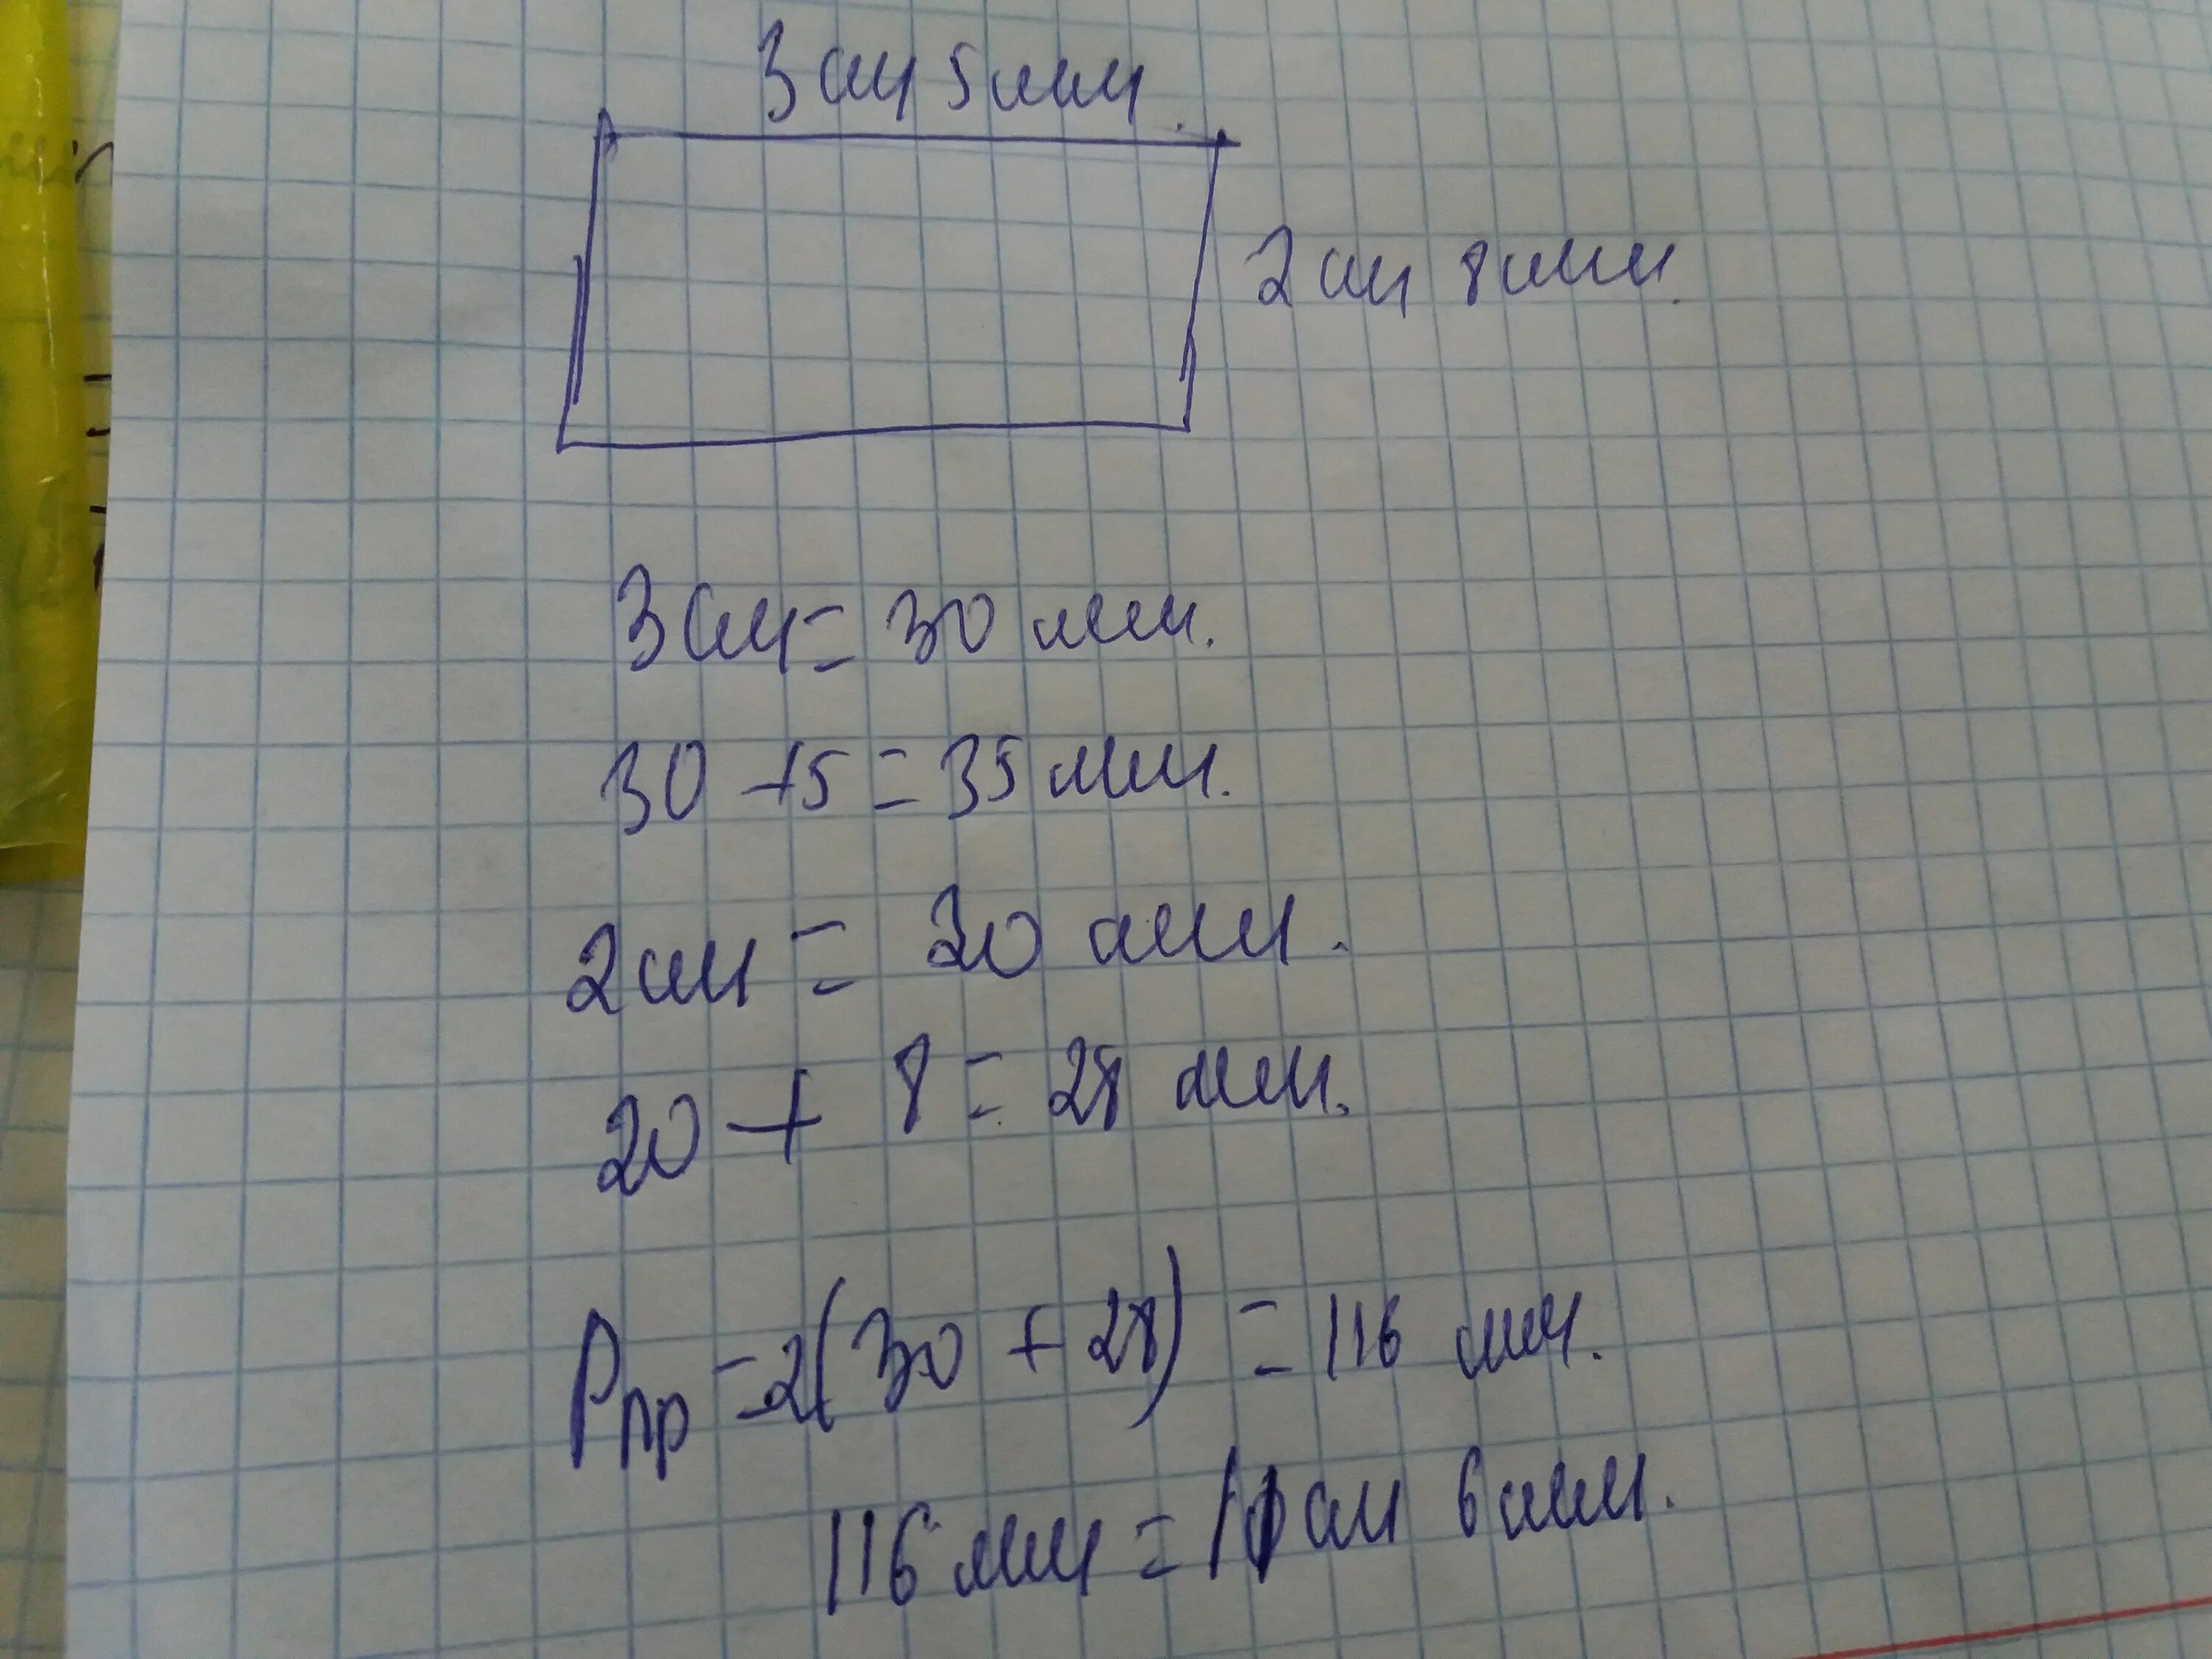 3 см 5 мм.
2 см 8 мм.
3 см = 30 мм.
30 + 5 = 35 мм.
2 см = 20 мм.
20 + 8 = 28 мм.
Pпр = 2(30 + 28) = 116 мм.
116 мм = 11 см 6 мм.